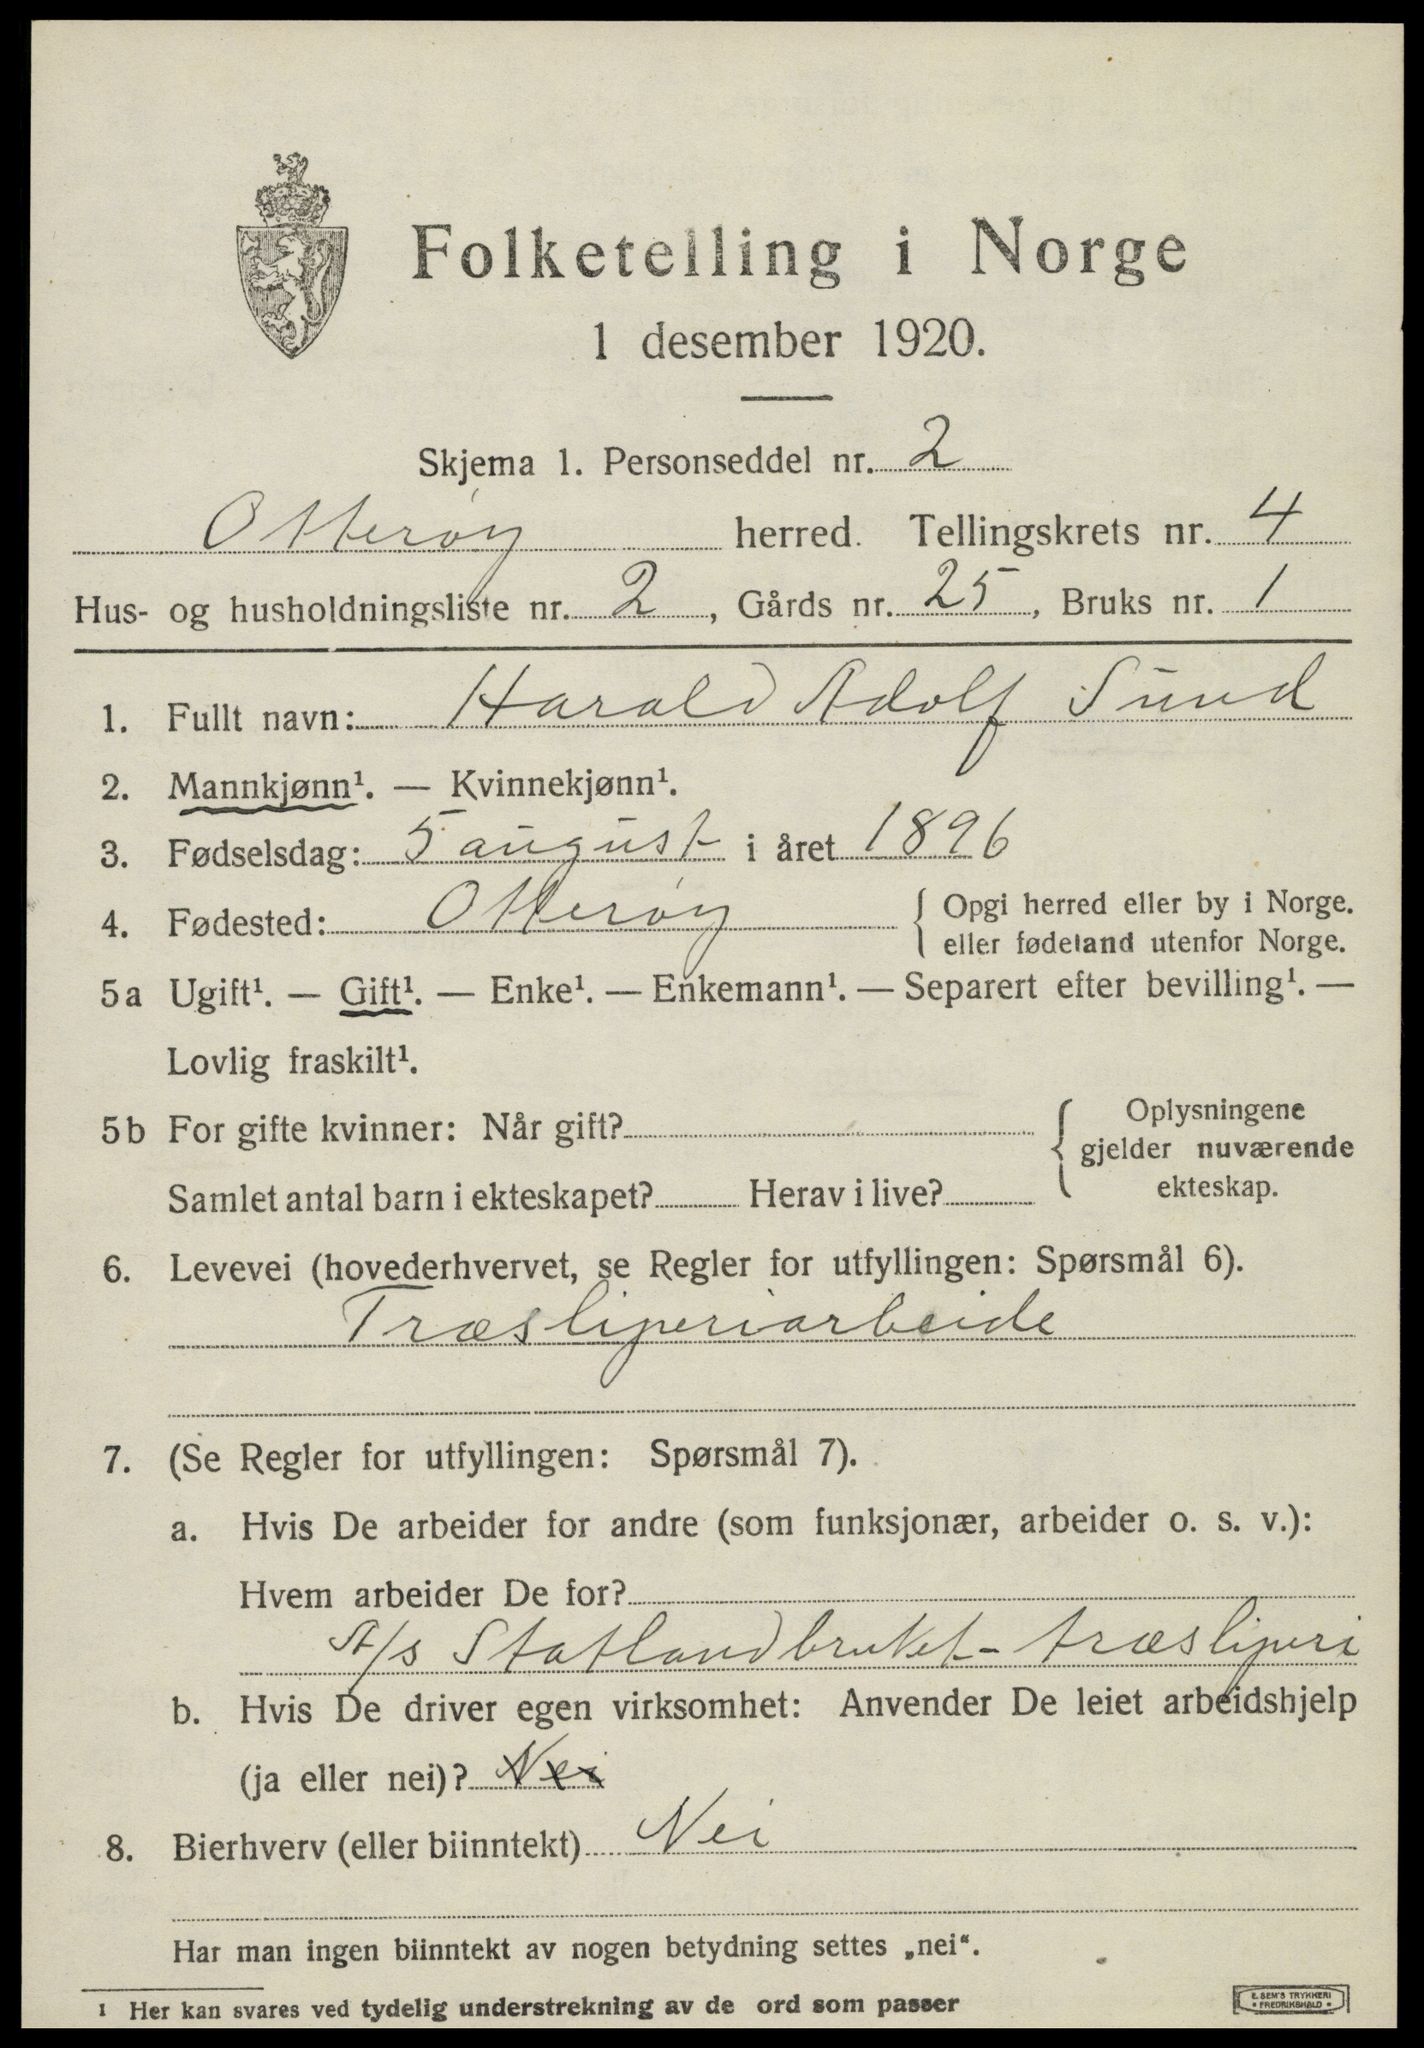 Folketelling i Norge
1 desember 1920.
Skjema 1. Personseddel nr. 2
Otterøy herred. Tellingskrets nr. 4
Hus- og husholdningsliste nr. 2, Gårds nr. 25, Bruks nr. 1
1. Fullt navn: Harald Adolf Sund
2. Mannkjønn¹. — Kvinnekjønn¹.
3. Fødselsdag: 5 august i året 1896
4. Fødested: Otterøy { Opgi herred eller by i Norge.
eller fødeland utenfor Norge.
5a Ugift¹. — Gift¹. — Enke¹. — Enkemann¹. — Separert efter bevilling¹. —
Lovlig fraskilt¹.
5b For gifte kvinner: Når gift? { Oplysningene
gjelder nuværende
ekteskap.
Samlet antal barn i ekteskapet? Herav i live?
6. Levevei (hovederhvervet, se Regler for utfyllingen: Spørsmål 6).
Træsliperiarbeide
7. (Se Regler for utfyllingen: Spørsmål 7).
a. Hvis De arbeider for andre (som funksjonær, arbeider o. s. v.):
Hvem arbeider De for?
A/s Statlandbruket - træsliperi
b. Hvis De driver egen virksomhet: Anvender De leiet arbeidshjelp
(ja eller nei)? Nei
8. Bierhverv (eller biinntekt) Nei
Har man ingen biinntekt av nogen betydning settes „nei“.
¹ Her kan svares ved tydelig understrekning av de ord som passer
E. SEM'S TRYKKERI
FREDRIKSHALD